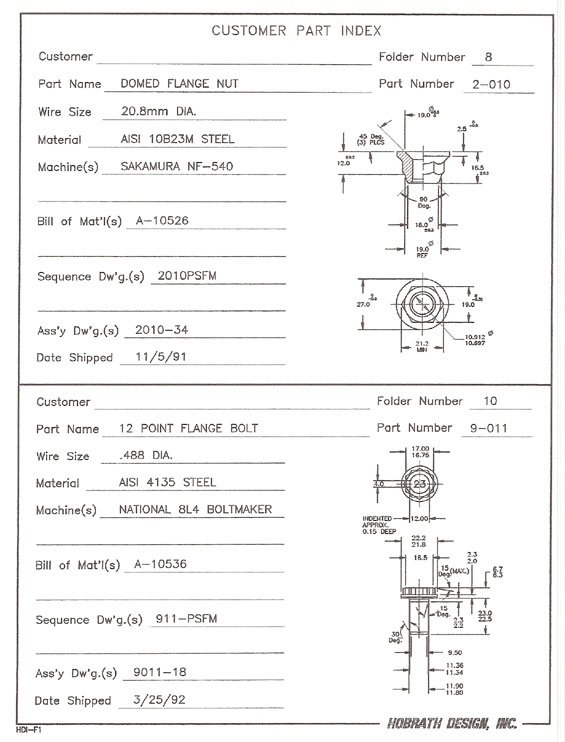 CUSTOMER PART INDEX
Customer
Folder Number 8
Part Name DOMED FLANGE NUT
Part Number 2-010
Wire Size 20.8mm DIA.
Material AISI 10B23M STEEL
Machine(s) SAKAMURA NF-540
Bill of Mat'l(s) A-10526
Sequence Dw'g.(s) 2010PSFM
Ass'y Dw'g.(s) 2010-34
Date Shipped 11/5/91
Ø
19.0
45 Deg.
(3) PLCS
2.5
12.0
16.5
90
Deg.
Ø
18.0
Ø
19.0
REF
27.0
19.0
10.912 Ø
10.897
21.2
MIN
Customer
Folder Number 10
Part Name 12 POINT FLANGE BOLT
Part Number 9-011
Wire Size .488 DIA.
Material AISI 4135 STEEL
Machine(s) NATIONAL 8L4 BOLTMAKER
Bill of Mat'l(s) A-10536
Sequence Dw'g.(s) 911-PSFM
Ass'y Dw'g.(s) 9011-18
Date Shipped 3/25/92
17.00
16.75
23
INDENTED
APPROX.
0.15 DEEP
12.00
22.2
21.8
16.5
15
Deg.
(MAX.)
2.3
2.0
6.7
6.3
15
Deg.
23.0
22.5
30
Deg.
9.50
11.36
11.34
11.90
11.80
HDI-F1
HOBRATH DESIGN, INC.